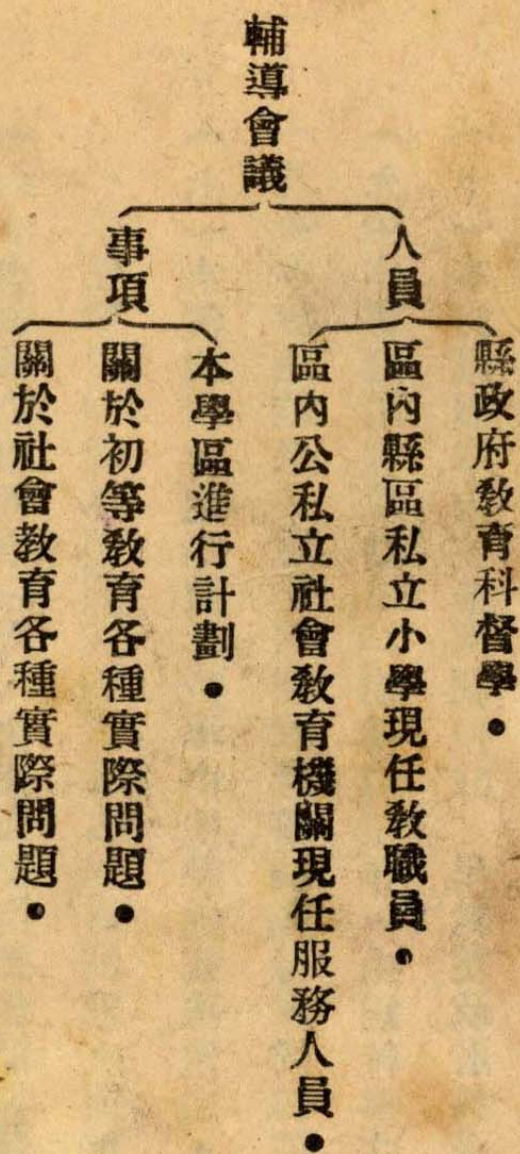 輔導會議
人員
縣政府教育科督學●
區內縣區私立小學現任教職員●
區內公私立社會教育機關現任服務人員●
事項
本學區進行計劃●
關於初等教育各種實際問題●
關於社會教育各種實際問題●